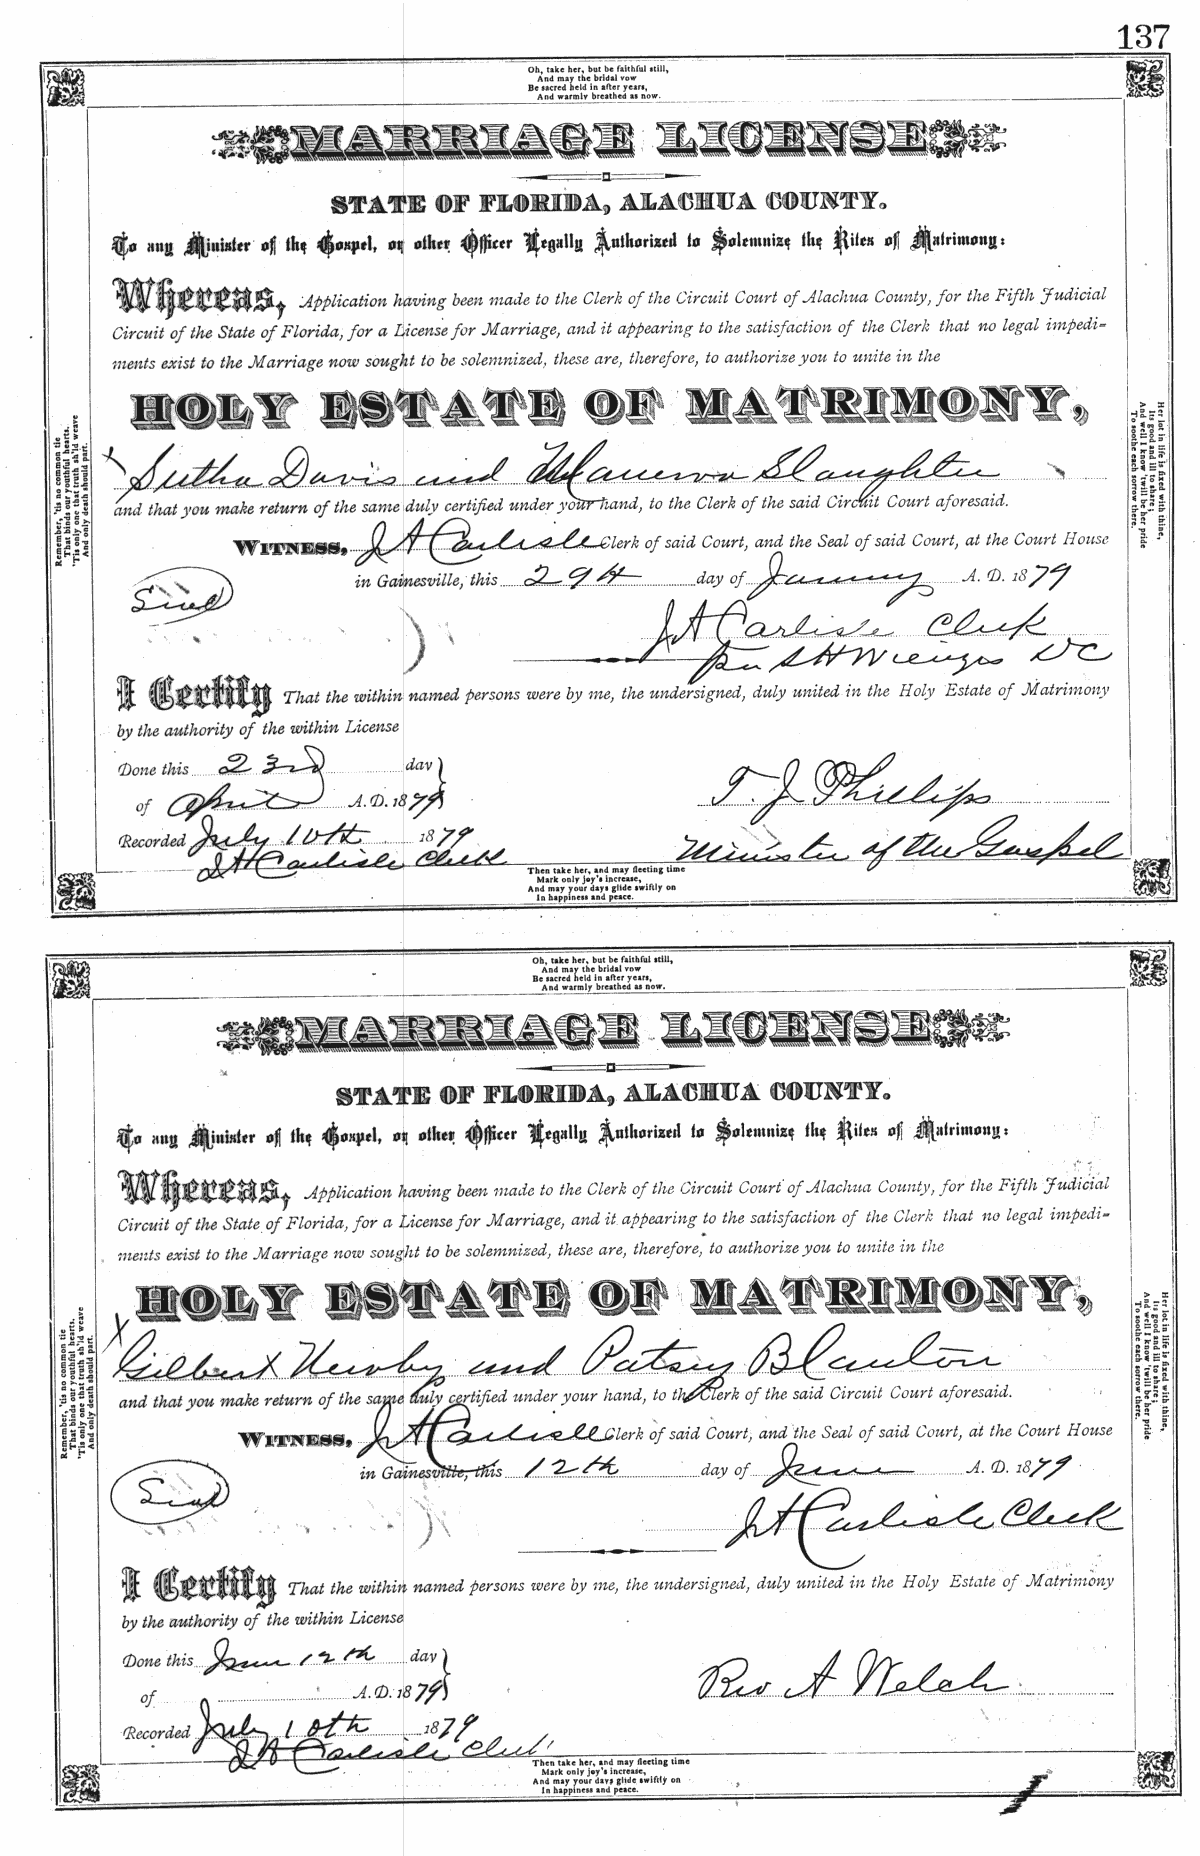 137
Oh, take her, but be faithful still,
And may the bridal vow
Be sacred held in after years,
And warmly breathed as now.
MARRIAGE LICENSE
STATE OF FLORIDA, ALACHUA COUNTY.
To any Minister of the Gospel, or other Officer Legally Authorized to Solemnize the Rites of Matrimony:
Whereas, Application having been made to the Clerk of the Circuit Court of Alachua County, for the Fifth Judicial
Circuit of the State of Florida, for a License for Marriage, and it appearing to the satisfaction of the Clerk that no legal impedi-
ments exist to the Marriage now sought to be solemnized, these are, therefore, to authorize you to unite in the
HOLY ESTATE OF MATRIMONY,
x Davis and Slaughter
and that you make return of the same duly certified under your hand, to the Clerk of the said Circuit Court aforesaid.
WITNESS, J A Carlisle Clerk of said Court, and the Seal of said Court, at the Court House
in Gainesville, this 29th day of January A. D. 1879
Seal
J A Carlisle Clerk
per S H DC
I Certify That the within named persons were by me, the undersigned, duly united in the Holy Estate of Matrimony
by the authority of the within License
Done this 23rd day
of April A. D. 1879
T. J. Phillips
Recorded July 10th 1879
Minister of the Gospel
J A Carlisle Clerk
Then take her, and may fleeting time
Mark only joy's increase,
And may your days glide swiftly on
In happiness and peace.
Remember, 'tis no common tie
That binds our youthful hearts,
'Tis only one that truth sh'ld weave
And only death should part.
Her lot in life is fixed with thine,
Its good and ill to share;
And well I know 'twill be her pride
To soothe each sorrow there.
Oh, take her, but be faithful still,
And may the bridal vow
Be sacred held in after years,
And warmly breathed as now.
MARRIAGE LICENSE
STATE OF FLORIDA, ALACHUA COUNTY.
To any Minister of the Gospel, or other Officer Legally Authorized to Solemnize the Rites of Matrimony:
Whereas, Application having been made to the Clerk of the Circuit Court of Alachua County, for the Fifth Judicial
Circuit of the State of Florida, for a License for Marriage, and it appearing to the satisfaction of the Clerk that no legal impedi-
ments exist to the Marriage now sought to be solemnized, these are, therefore, to authorize you to unite in the
HOLY ESTATE OF MATRIMONY,
x Gilbert Newby and Patsey Blanton
and that you make return of the same duly certified under your hand, to the Clerk of the said Circuit Court aforesaid.
WITNESS, J A Carlisle Clerk of said Court, and the Seal of said Court, at the Court House
in Gainesville, this 12th day of June A. D. 1879
Seal
J A Carlisle Clerk
I Certify That the within named persons were by me, the undersigned, duly united in the Holy Estate of Matrimony
by the authority of the within License
Done this June 12th day
of A. D. 1879
Rev A Welch
Recorded July 10th 1879
J A Carlisle Clerk
Then take her, and may fleeting time
Mark only joy's increase,
And may your days glide swiftly on
In happiness and peace.
Remember, 'tis no common tie
That binds our youthful hearts,
'Tis only one that truth sh'ld weave
And only death should part.
Her lot in life is fixed with thine,
Its good and ill to share;
And well I know 'twill be her pride
To soothe each sorrow there.